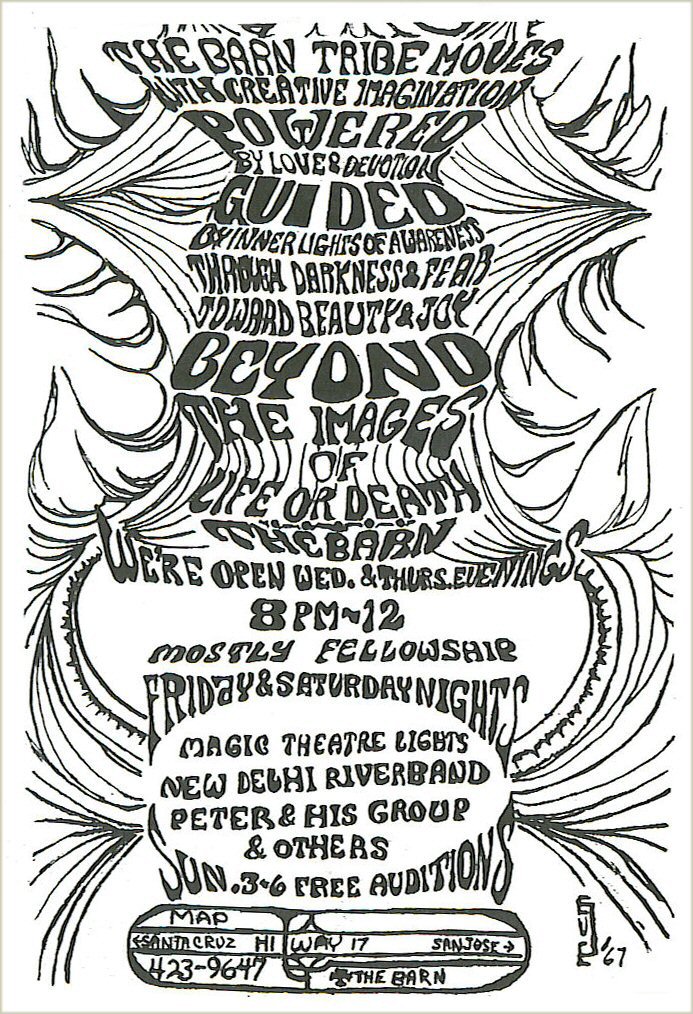 THE BARN TRIBE MOVES
WITH CREATIVE IMAGINATION
POWERED
BY LOVE & DEVOTION
GUIDED
BY INNER LIGHTS OF AWARENESS
THROUGH DARKNESS & FEAR
TOWARD BEAUTY & JOY
BEYOND
THE IMAGES
OF
LIFE OR DEATH
THE BARN
WE'RE OPEN WED. & THURS. EVENINGS
8 PM~12
MOSTLY FELLOWSHIP
FRIDAY & SATURDAY NIGHTS
MAGIC THEATRE LIGHTS
NEW DELHI RIVERBAND
PETER & HIS GROUP
& OTHERS
SUN. 3-6 FREE AUDITIONS
MAP
←SANTA CRUZ HI WAY 17 SAN JOSE→
423-9647 THE BARN
'67